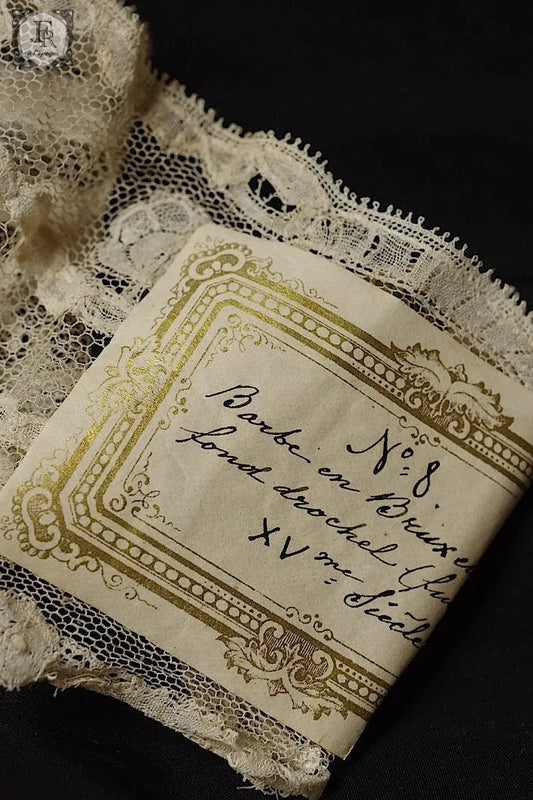 FR
Nº 8.
Barbe en Bruxe
fond drochel (fu
XVme Siècle